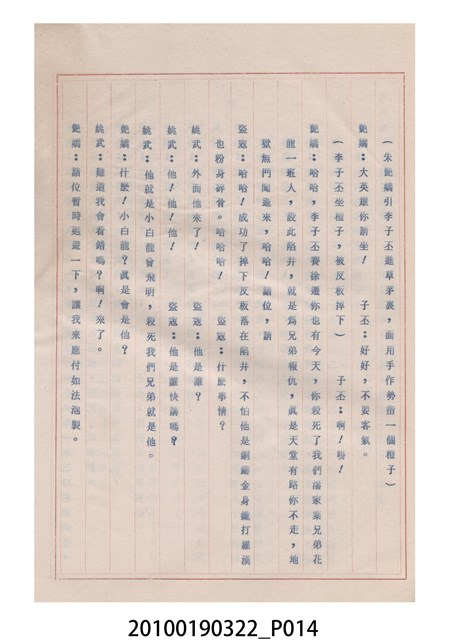 (朱艷嬌引李子丕進草茅裏,面用手作勢指一個櫈子)
艷嬌:大英雄你請坐! 子丕:好好,不要客氣。
(李子丕坐櫈子,被反板掉下) 子丕:啊!唷!
艷嬌:哈哈,李子丕賽徐遜你也有今天,你殺死了我們潘家寨兄弟花
龍一班人,設此陷井,就是為兄弟報仇,真是天堂有路你不走,地
獄無門闖進來,哈哈!諸位,請
盜寇:哈哈!成功了掉下反板落在陷井,不怕他是銅鑄金身鐵打羅漢
也粉身碎骨。哈哈哈! 盜寇:什麼事情?
姚武:外面他來了! 盜寇:他是誰?
姚武:他!他!他! 盜寇:他是誰快講嗎?
姚武:他就是小白龍曾飛明,殺死我們兄弟就是他。
艷嬌:什麼!小白龍?真是會是他?
姚武:難道我會看錯嗎?啊!來了。
艷嬌:諸位暫時迴避一下,讓我來應付如法泡製。
20100190322_P014